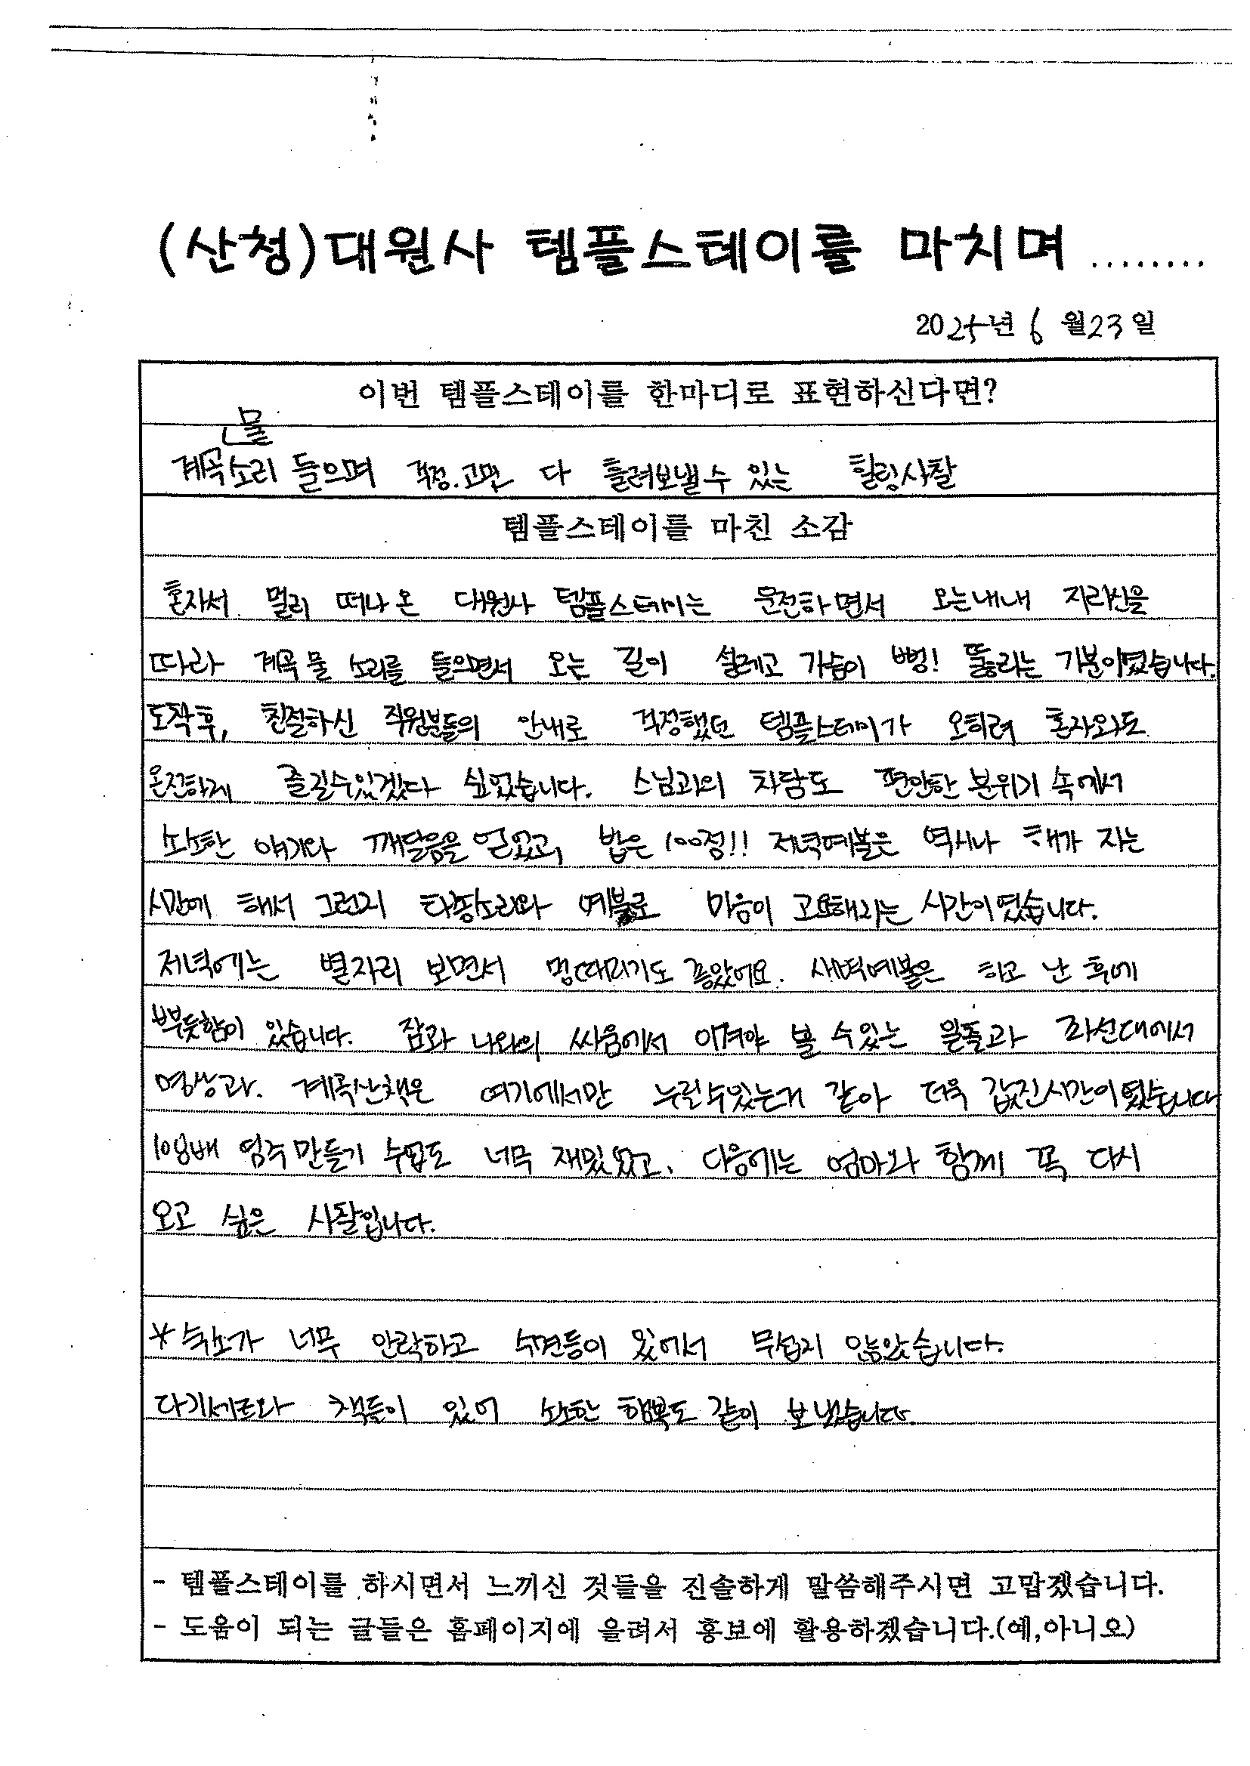 (산청)대원사 템플스테이를 마치며........
2025년 6월23일
이번 템플스테이를 한마디로 표현하신다면?
물
계곡소리 들으며 걱정.고민 다 흘려보낼수 있는 힐링사찰
템플스테이를 마친 소감
혼자서 멀리 떠나온 대원사 템플스테이는 운전하면서 오는내내 지리산을
따라 계곡물 소리를 들으면서 오는 길이 설레고 가슴이 뻥! 뚫리는 기분이였습니다.
도착후, 친절하신 직원분들의 안내로 걱정했던 템플스테이가 오히려 혼자와도
온전하게 즐길수있겠다 싶었습니다. 스님과의 차담도 편안한 분위기 속에서
소소한 얘기와 깨달음을 얻었고, 밥은 100점!! 저녁예불은 역시나 해가 지는
시간에 해서 그런지 타종소리와 예불로 마음이 고요해지는 시간이였습니다.
저녁에는 별자리 보면서 멍때리기도 좋았어요. 새벽예불은 하고 난 후에
뿌듯함이 있습니다. 잠과 나와의 싸움에서 이겨야 볼 수있는 일출과 좌선대에서
명상과. 계곡산책은 여기에서만 누릴수있는거 같아 더욱 값진시간이였습니다
108배 염주만들기 수업도 너무 재밌었고, 다음에는 엄마와 함께 꼭 다시
오고 싶은 사찰입니다.
* 숙소가 너무 안락하고 수면등이 있어서 무섭지 않았습니다.
다기세트와 책들이 있어 소소한 행복도 같이 보냈습니다.
- 템플스테이를 하시면서 느끼신 것들을 진솔하게 말씀해주시면 고맙겠습니다.
- 도움이 되는 글들은 홈페이지에 올려서 홍보에 활용하겠습니다.(예,아니오)